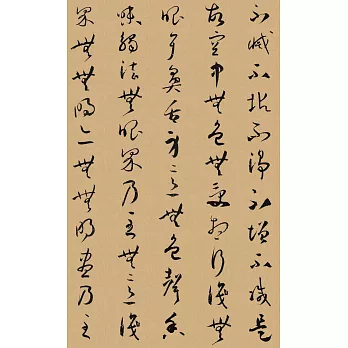 不滅不垢不淨不增不減是
故空中無色無受想行識無
眼耳鼻舌身意無色聲香
味觸法無眼界乃至無意識
界無無明亦無無明盡乃至